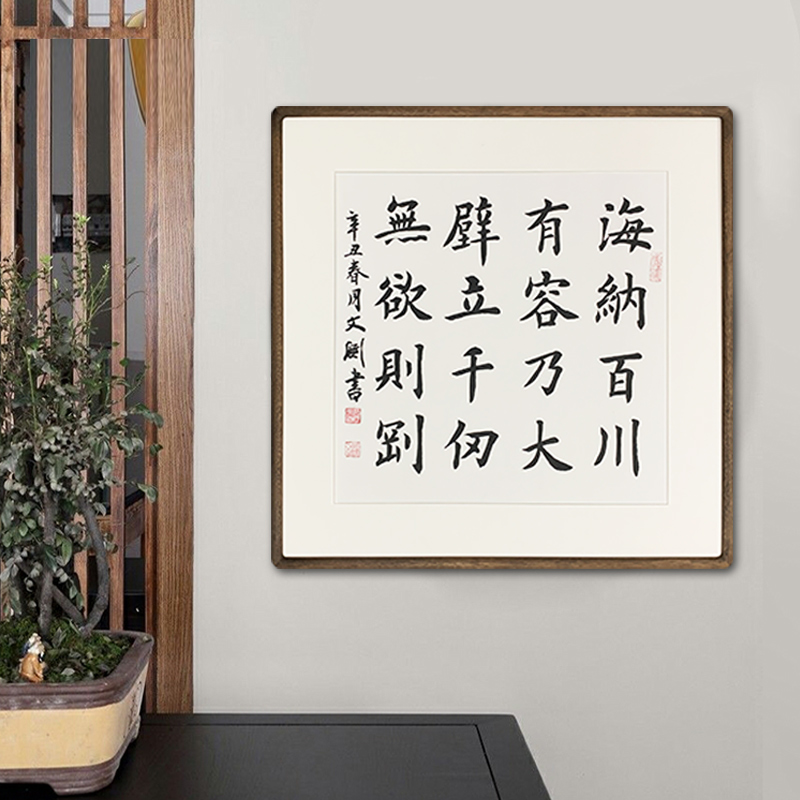 海納百川
有容乃大
壁立千仞
無欲則剛
辛丑春月文剛書